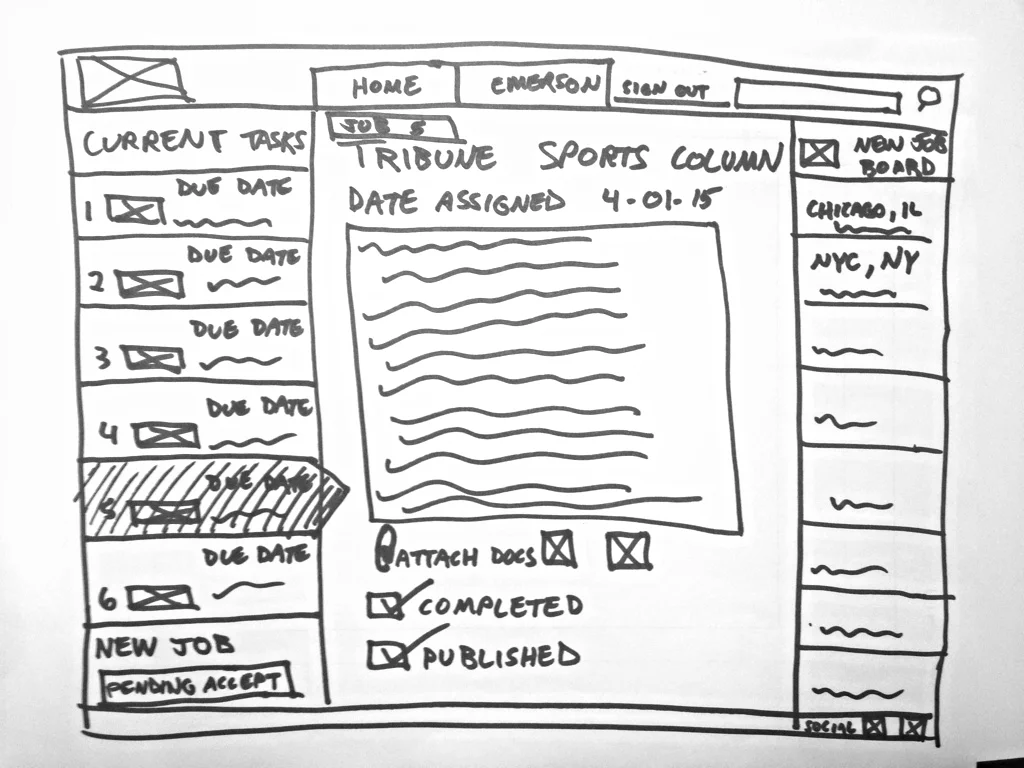 HOME
EMERSON
SIGN OUT
CURRENT TASKS
1 DUE DATE
2 DUE DATE
3 DUE DATE
4 DUE DATE
5 DUE DATE
6 DUE DATE
NEW JOB
PENDING ACCEPT
JOB 5
TRIBUNE SPORTS COLUMN
DATE ASSIGNED 4-01-15
ATTACH DOCS
COMPLETED
PUBLISHED
NEW JOB
BOARD
CHICAGO, IL
NYC, NY
SOCIAL